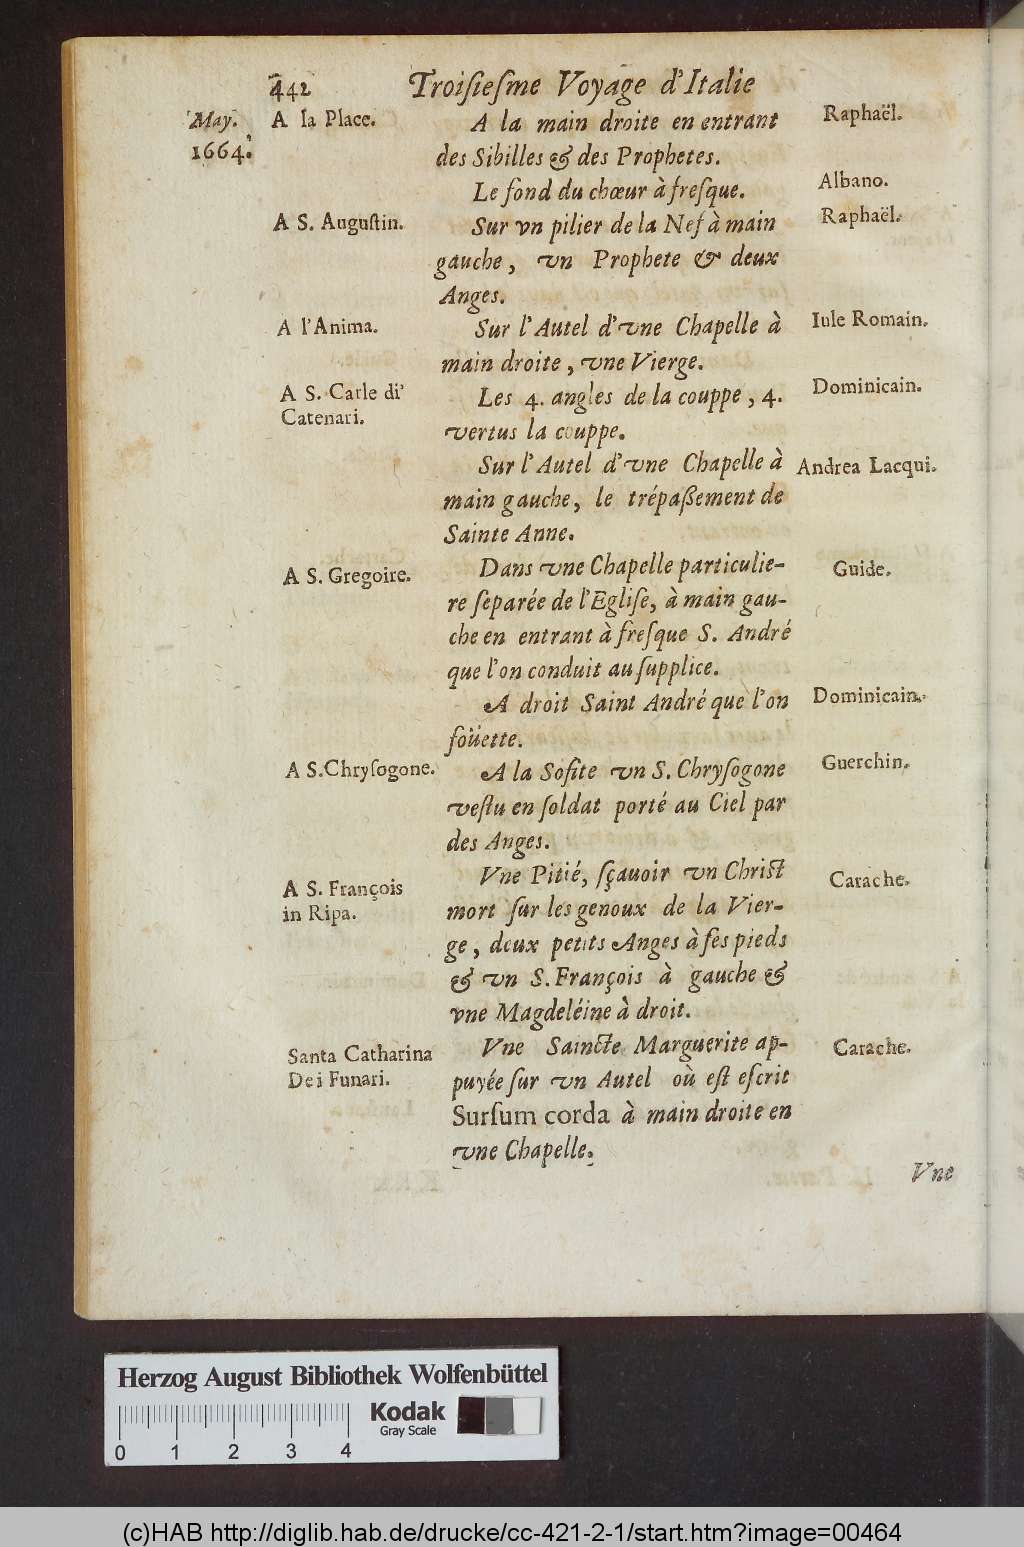 442 Troisiesme Voyage d'Italie
May.
1664.
A la Place. A la main droite en entrant Raphaël.
des Sibilles & des Prophetes.
Le fond du chœur à fresque. Albano.
A S. Augustin. Sur vn pilier de la Nef à main Raphaël.
gauche, vn Prophete & deux
Anges.
A l'Anima. Sur l'Autel d'vne Chapelle à Iule Romain.
main droite, vne Vierge.
A S. Carle di' Les 4. angles de la couppe, 4. Dominicain.
Catenari. vertus la couppe.
Sur l'Autel d'vne Chapelle à Andrea Lacqui.
main gauche, le trépaßement de
Sainte Anne.
A S. Gregoire. Dans vne Chapelle particulie- Guide.
re separée de l'Eglise, à main gau-
che en entrant à fresque S. André
que l'on conduit au supplice.
A droit Saint André que l'on Dominicain.
foüette.
A S. Chrysogone. A la Sofite vn S. Chrysogone Guerchin.
vestu en soldat porté au Ciel par
des Anges.
A S. François Vne Pitié, sçauoir vn Christ Carache.
in Ripa. mort sur les genoux de la Vier-
ge, deux petits Anges à ses pieds
& vn S. François à gauche &
vne Magdeléine à droit.
Santa Catharina Vne Saincte Marguerite ap- Carache.
Dei Funari. puyée sur vn Autel où est escrit
Sursum corda à main droite en
vne Chapelle.
Vne
Herzog August Bibliothek Wolfenbüttel
Kodak
Gray Scale
0 1 2 3 4
(c)HAB http://diglib.hab.de/drucke/cc-421-2-1/start.htm?image=00464